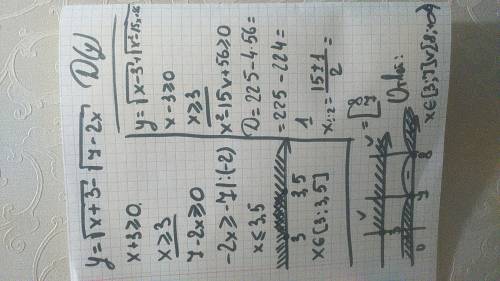 y=√x+3-√y-2x D(y)
x+3≥0
x≥3
y-2x≥0
-2x≥-7|:(-2)
x≤3,5
3 3,5
x∈[3;3,5]
y=√x-3+√x²-15x+56
x-3≥0
x≥3
x²-15x+56≥0
D=225-4·56=
=225-224=
1
x₁,₂=15±1/2=
=[8 7
0 3 7 8
x∈[3;7]∪[8;+∞)